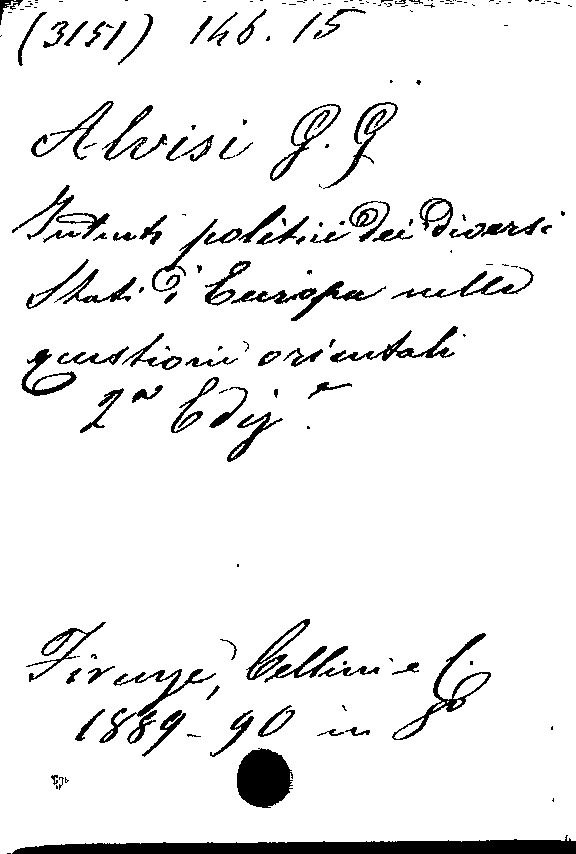 (3151) 146. 15
Alvisi G. G
Intenti politici dei diversi
Stati d'Europa nelle
questioni orientali
2ª Ediz.e
Firenze, Cellini e C.
1889-90 in 8º